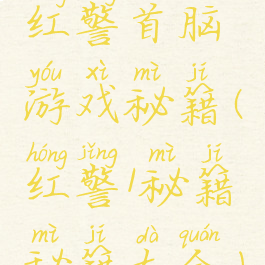 红警首脑
yóu xì mì jí
游戏秘籍(
hóng jǐng mì jí
红警1秘籍
mì jí dà quán
秘籍大全)